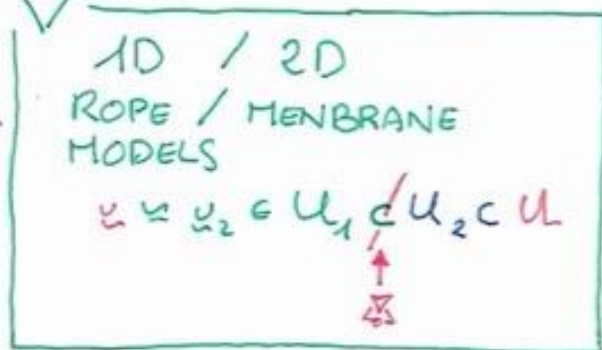 1D / 2D
ROPE / MENBRANE
MODELS
u ≈ u₂ ∈ U₁ ⊄ U₂ ⊂ U